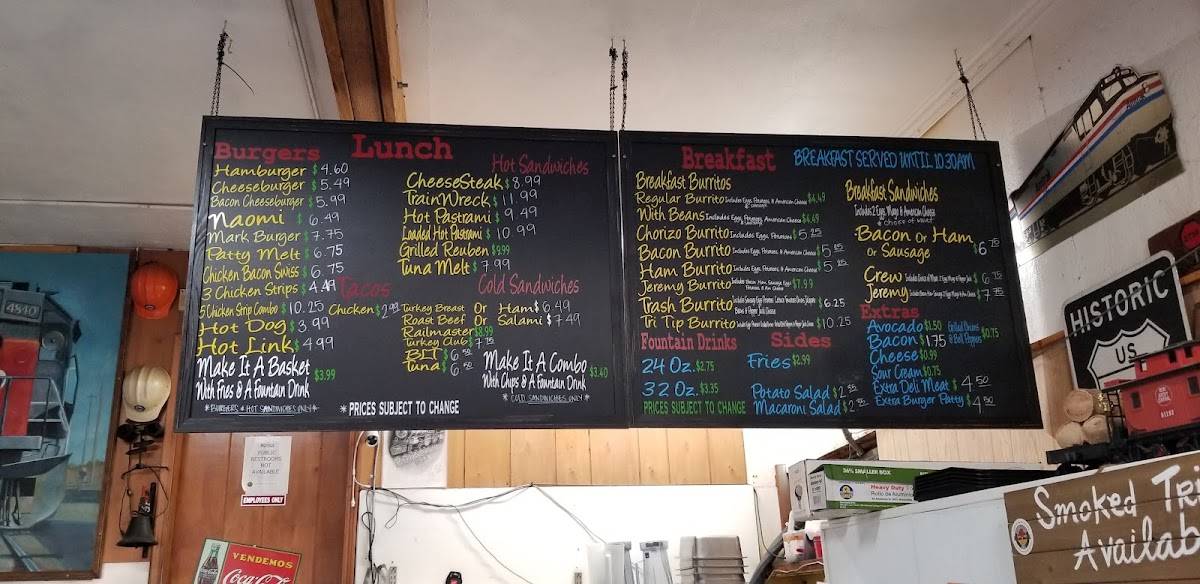 Lunch
Burgers
Hamburger $4.60
Cheeseburger $5.49
Bacon Cheeseburger $5.99
Naomi $6.49
Mark Burger $7.75
Patty Melt $6.75
Chicken Bacon Swiss $6.75
3 Chicken Strips $4.49
5 Chicken Strip Combo $10.25
Hot Dog $3.99
Hot Link $4.99
Make It A Basket $3.99
With Fries & A Fountain Drink
*BURGERS & HOT SANDWICHES ONLY*
Tacos
Chicken $2.99
Hot Sandwiches
CheeseSteak $8.99
TrainWreck $11.99
Hot Pastrami $9.49
Loaded Hot Pastrami $10.99
Grilled Reuben $9.99
Tuna Melt $7.99
Cold Sandwiches
Turkey Breast Or Ham $6.49
Roast Beef Or Salami $7.49
Railmaster $8.99
Turkey Club $7.75
BLT $6.50
Tuna $6.50
Make It A Combo $3.40
With Chips & A Fountain Drink
*COLD SANDWICHES ONLY*
*PRICES SUBJECT TO CHANGE
Breakfast
BREAKFAST SERVED UNTIL 10:30AM
Breakfast Burritos
Regular Burrito Includes Eggs, Potatoes, & American Cheese $4.49
With Beans Includes Eggs, Potatoes, & American Cheese $4.49
Chorizo Burrito Includes Eggs, Potatoes $5.25
Bacon Burrito Includes Eggs, Potatoes, & American Cheese $5
Ham Burrito Includes Eggs, Potatoes, & American Cheese $5
Jeremy Burrito $7.99
Trash Burrito $6.25
Tri Tip Burrito $10.25
Breakfast Sandwiches
Includes 2 Eggs, Mayo & American Cheese
& choice of meat
Bacon Or Ham
Or Sausage $6.75
Crew $6.75
Jeremy $7.75
Fountain Drinks
24 Oz. $2.75
32 Oz. $3.35
PRICES SUBJECT TO CHANGE
Sides
Fries $2.99
Potato Salad $2
Macaroni Salad $2
Extras
Avocado $1.50
Bacon $1.75
Cheese $0.99
Sour Cream $0.75
Extra Deli Meat $4.50
Extra Burger Patty $4.50
Grilled Onions
& Bell Peppers $0.75
4840
PUBLIC
RESTROOMS
NOT
AVAILABLE
EMPLOYEES ONLY
VENDEMOS
Coca-Cola
36% SMALLER BOX
Heavy Duty
HISTORIC
US
Smoked Tri
Availab